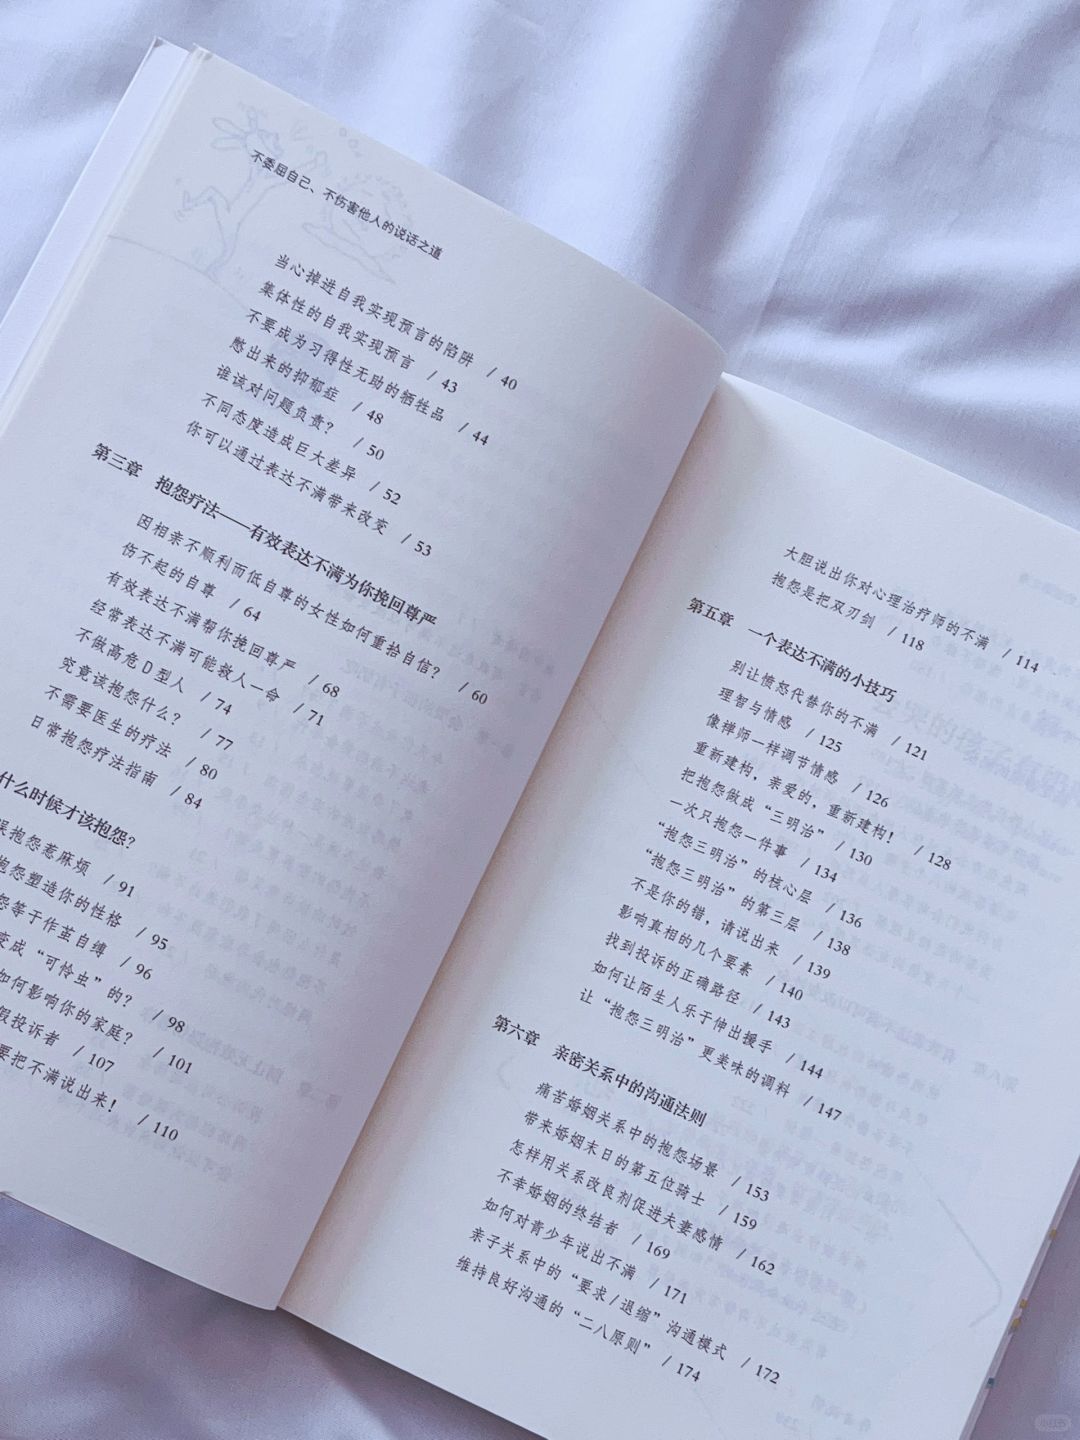 不委屈自己、不伤害他人的说话之道
当心掉进自我实现预言的陷阱 / 40
集体性的自我实现预言 / 43
不要成为习得性无助的牺牲品 / 44
憋出来的抑郁症 / 48
谁该对问题负责? / 50
不同态度造成巨大差异 / 52
你可以通过表达不满带来改变 / 53
第三章 抱怨疗法——有效表达不满为你挽回尊严
因相亲不顺利而低自尊的女性如何重拾自信? / 60
伤不起的自尊 / 64
有效表达不满帮你挽回尊严 / 68
经常表达不满可能救人一命 / 71
不做高危D型人 / 74
究竟该抱怨什么? / 77
不需要医生的疗法 / 80
日常抱怨疗法指南 / 84
什么时候才该抱怨?
抱怨惹麻烦 / 91
抱怨塑造你的性格 / 95
怨等于作茧自缚 / 96
变成“可怜虫”的? / 98
如何影响你的家庭? / 101
假投诉者 / 107
要把不满说出来! / 110
大胆说出你对心理治疗师的不满 / 114
抱怨是把双刃剑 / 118
第五章 一个表达不满的小技巧
别让愤怒代替你的不满 / 121
理智与情感 / 125
像禅师一样调节情感 / 126
重新建构，亲爱的，重新建构! / 128
把抱怨做成“三明治” / 130
一次只抱怨一件事 / 134
“抱怨三明治”的核心层 / 136
“抱怨三明治”的第三层 / 138
不是你的错，请说出来 / 139
影响真相的几个要素 / 140
找到投诉的正确路径 / 143
如何让陌生人乐于伸出援手 / 144
让“抱怨三明治”更美味的调料 / 147
第六章 亲密关系中的沟通法则
痛苦婚姻关系中的抱怨场景 / 153
带来婚姻末日的第五位骑士 / 159
怎样用关系改良剂促进夫妻感情 / 162
不幸婚姻的终结者 / 169
如何对青少年说出不满 / 171
亲子关系中的“要求/退缩”沟通模式 / 172
维持良好沟通的“二八原则” / 174
小红书